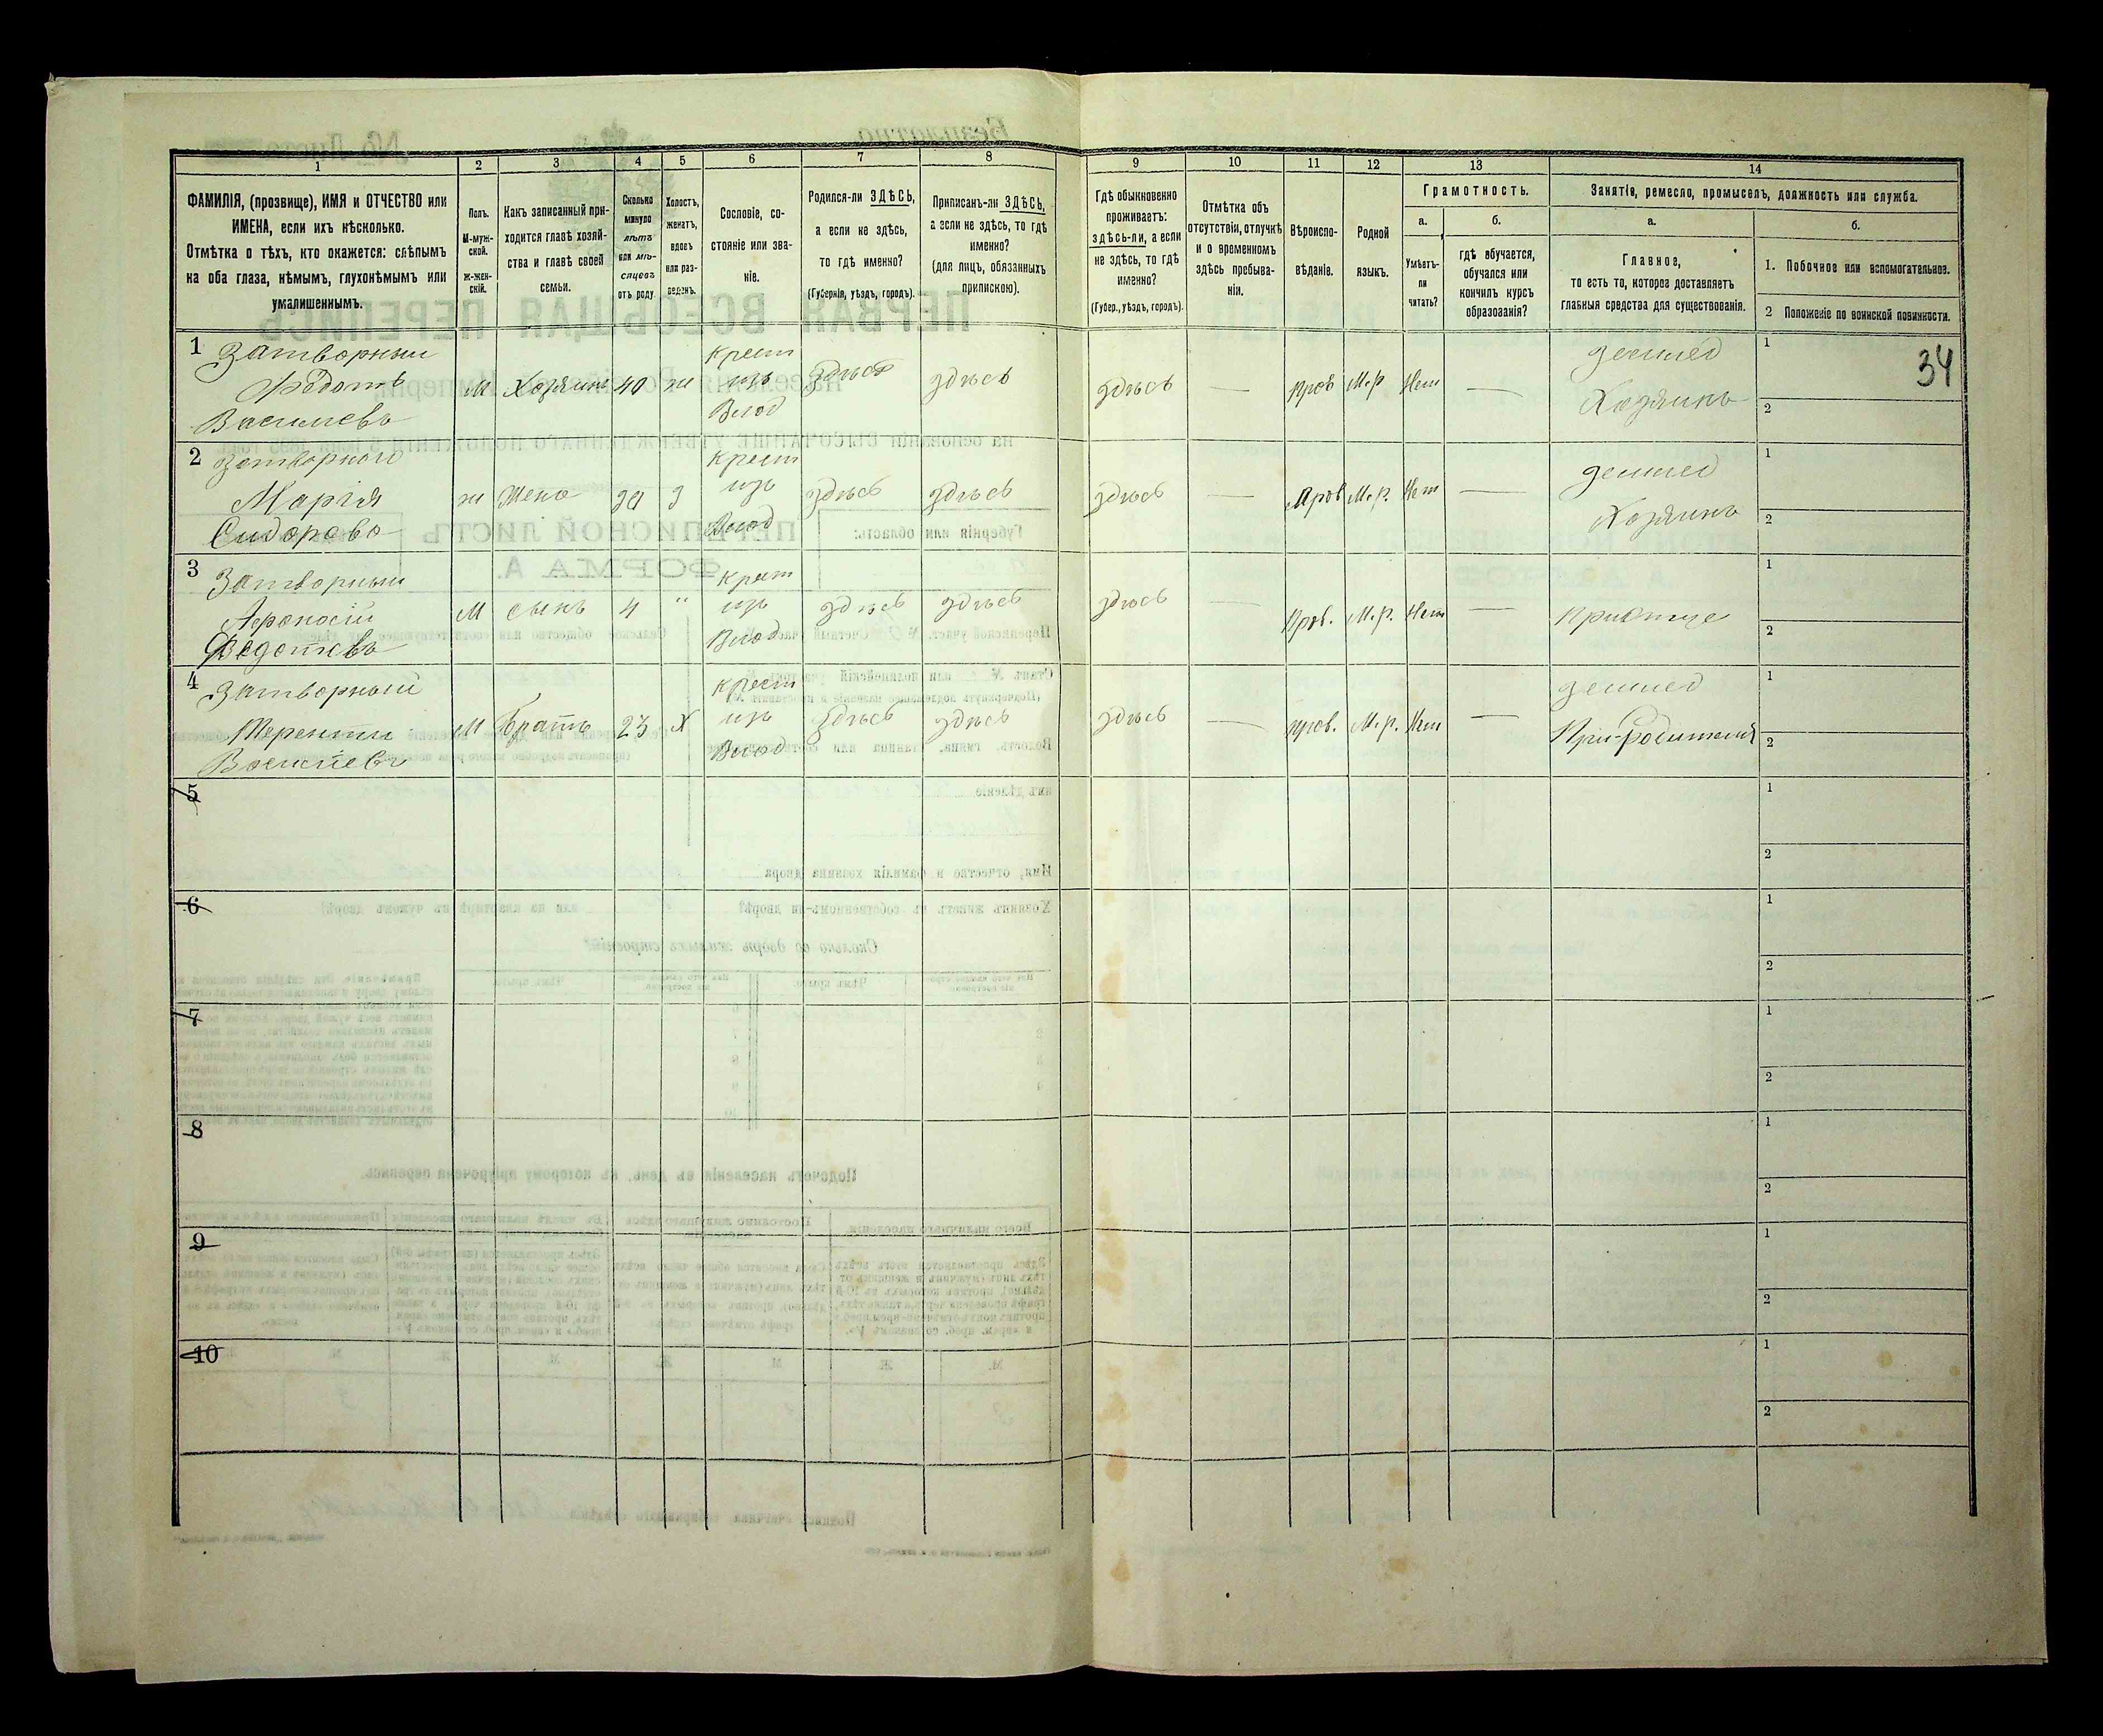 1 2 3 4 5 6 7 8 9 10 11 12 13 14
ФАМИЛІЯ, (прозвище), ИМЯ и ОТЧЕСТВО или
ИМЕНА, если ихъ нѣсколько.
Отмѣтка о тѣхъ, кто окажется: слѣпымъ
на оба глаза, нѣмымъ, глухонѣмымъ или
умалишеннымъ.
Полъ.
М-муж-
ской.
ж-жен-
скій.
Какъ записанный при-
ходится главѣ хозяй-
ства и главѣ своей
семьи.
Сколько
минуло
лѣтъ
или мѣ-
сяцевъ
отъ роду
Холостъ,
женатъ,
вдовъ
или раз-
веденъ.
Сословіе, со-
стояніе или зва-
ніе.
Родился-ли ЗДѢСЬ,
а если не здѣсь,
то гдѣ именно?
(Губернія, уѣздъ, городъ).
Приписанъ-ли ЗДѢСЬ,
а если не здѣсь, то гдѣ
именно?
(для лицъ, обязанныхъ
припискою).
Гдѣ обыкновенно
проживаетъ:
здѣсь-ли, а если
не здѣсь, то гдѣ
именно?
(Губер., уѣздъ, городъ).
Отмѣтка объ
отсутствіи, отлучкѣ
и о временномъ
здѣсь пребыва-
ніи.
Вѣроиспо-
вѣданіе.
Родной
языкъ.
Грамотность.
а.
Умѣетъ-
ли
читать?
б.
гдѣ обучается,
обучался или
кончилъ курсъ
образованія?
Занятіе, ремесло, промыселъ, должность или служба.
а.
Главное,
то есть то, которое доставляетъ
главныя средства для существованія.
б.
1. Побочное или вспомогательное.
2 Положеніе по воинской повинности.
34
1 Затворный
Федотъ
Васильевъ
М Хозяинъ 40 ж
крест
изъ
Влод
здѣсь здѣсь здѣсь — Прав М.р Нет —
землед
Хозяинъ
1
2
2 Затворной
Марія
Сидорова
ж Жена з
крест
изъ
Влод
здѣсь здѣсь здѣсь — Прав М.р. Нет —
землед
Хозяинъ
1
2
3 Затворный
Федотовъ
М сынъ 4 "
крест
изъ
Влод
здѣсь здѣсь здѣсь — Прав. М.р. Нет —
При отце
1
2
4 Затворный
Терентий
Васильевъ
М Братъ 23 Х
крест
изъ
Влод
здѣсь здѣсь здѣсь — прав. М.р. Нет —
землед
При родителя
1
2
5
1
2
6
1
2
7
1
2
8
1
2
9
1
2
10
1
2